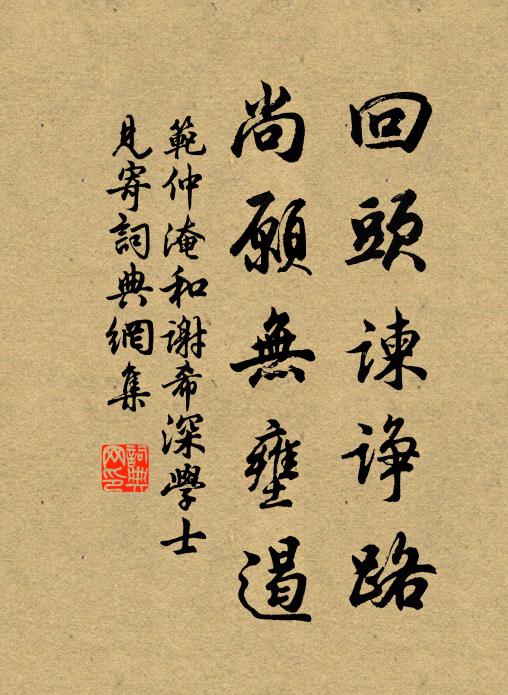 回頭諫諍路
尚願無壅遏
範仲淹和謝希深學士
見寄詞典網集
詞典
网印